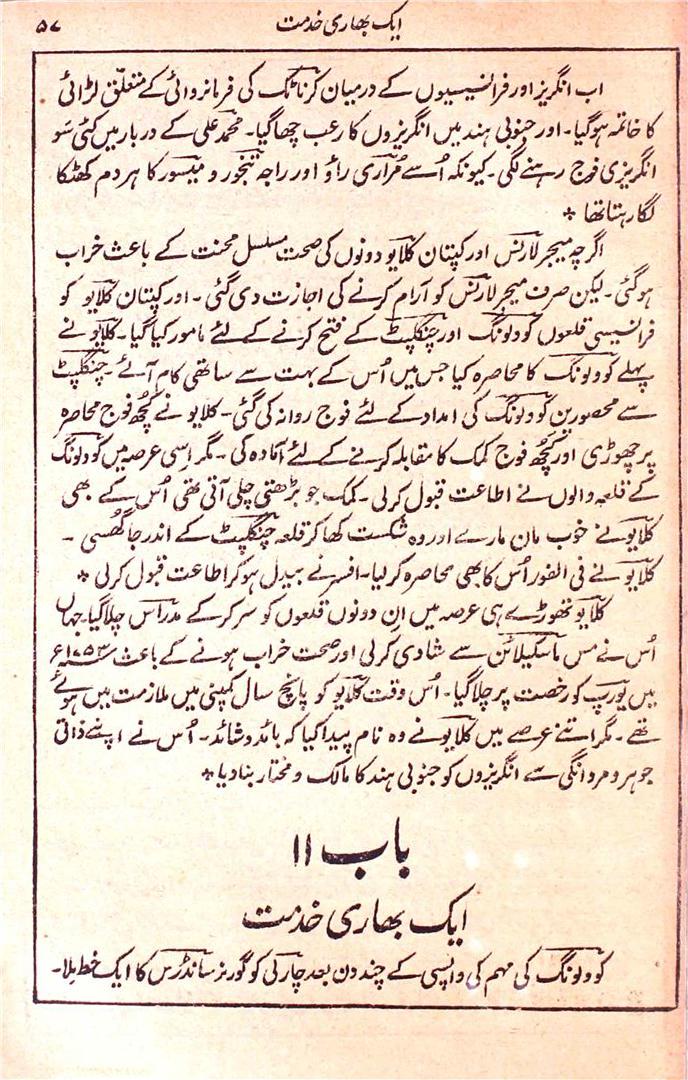 ایک بھاری خدمت ۵۷
اب انگریز اور فرانسیسیوں کے درمیان کرناٹک کی فرمانروائی کے متعلق لڑائی
کا خاتمہ ہو گیا۔ اور جنوبی ہند میں انگریزوں کا رعب چھا گیا۔ محمد علی کے دربار میں کئی سَو
انگریزی فوج رہنے لگی۔ کیونکہ اُسے مُراری راؤ اور راجہ تنجور و میسور کا ہر دم کھٹکا
لگا رہتا تھا *
اگرچہ میجر لارنس اور کپتان کلایو دونوں کی صحت مسلسل محنت کے باعث خراب
ہو گئی۔ لیکن صرف میجر لارنس کو آرام کرنے کی اجازت دی گئی۔ اور کپتان کلایو کو
فرانسیسی قلعوں کوولونگ اور چنگلپٹ کے فتح کرنے کے لئے مامور کیا گیا۔ کلایو نے
پہلے کوولونگ کا محاصرہ کیا جس میں اُس کے بہت سے ساتھی کام آئے۔ چنگلپٹ
سے محصورین کوولونگ کی امداد کے لئے فوج روانہ کی گئی۔ کلایو نے کچُھ فوج محاصرہ
پر چھوڑی اور کچُھ فوج کمک کا مقابلہ کرنے کے لئے آمادہ کی۔ مگر اِسی عرصہ میں کوولونگ
کے قلعہ والوں نے اطاعت قبول کر لی۔ کمک جو بڑھتی چلی آتی تھی اُس کے بھی
کلایو نے خوب مان مارے اور وہ شکست کھا کر قلعہ چنگلپٹ کے اندر جا گھُسی۔
کلایو نے فی الفور اُس کا بھی محاصرہ کر لیا۔ افسر نے بیدل ہو کر اطاعت قبول کر لی *
کلایو تھوڑے ہی عرصہ میں اِن دونوں قلعوں کو سر کر کے مدراس چلا گیا۔ جہاں
اُس نے مس ماسکیلائن سے شادی کر لی اور صحت خراب ہونے کے باعث سنہ ۱۷۵۳ء
میں یورپ کو رخصت پر چلا گیا۔ اُس وقت کلایو کو پانچ سال کمپنی میں ملازمت میں ہوئے
تھے۔ مگر اتنے عرصے میں کلایو نے وہ نام پیدا کیا کہ بائد و شائد۔ اُس نے اپنے ذاتی
جوہر و مردانگی سے انگریزوں کو جنوبی ہند کا مالک و مختار بنا دیا *
باب ۱۱
ایک بھاری خدمت
کوولونگ کی مہم کی واپسی کے چند دن بعد چارلی کو گورنر سانڈرس کا ایک خط مِلا۔